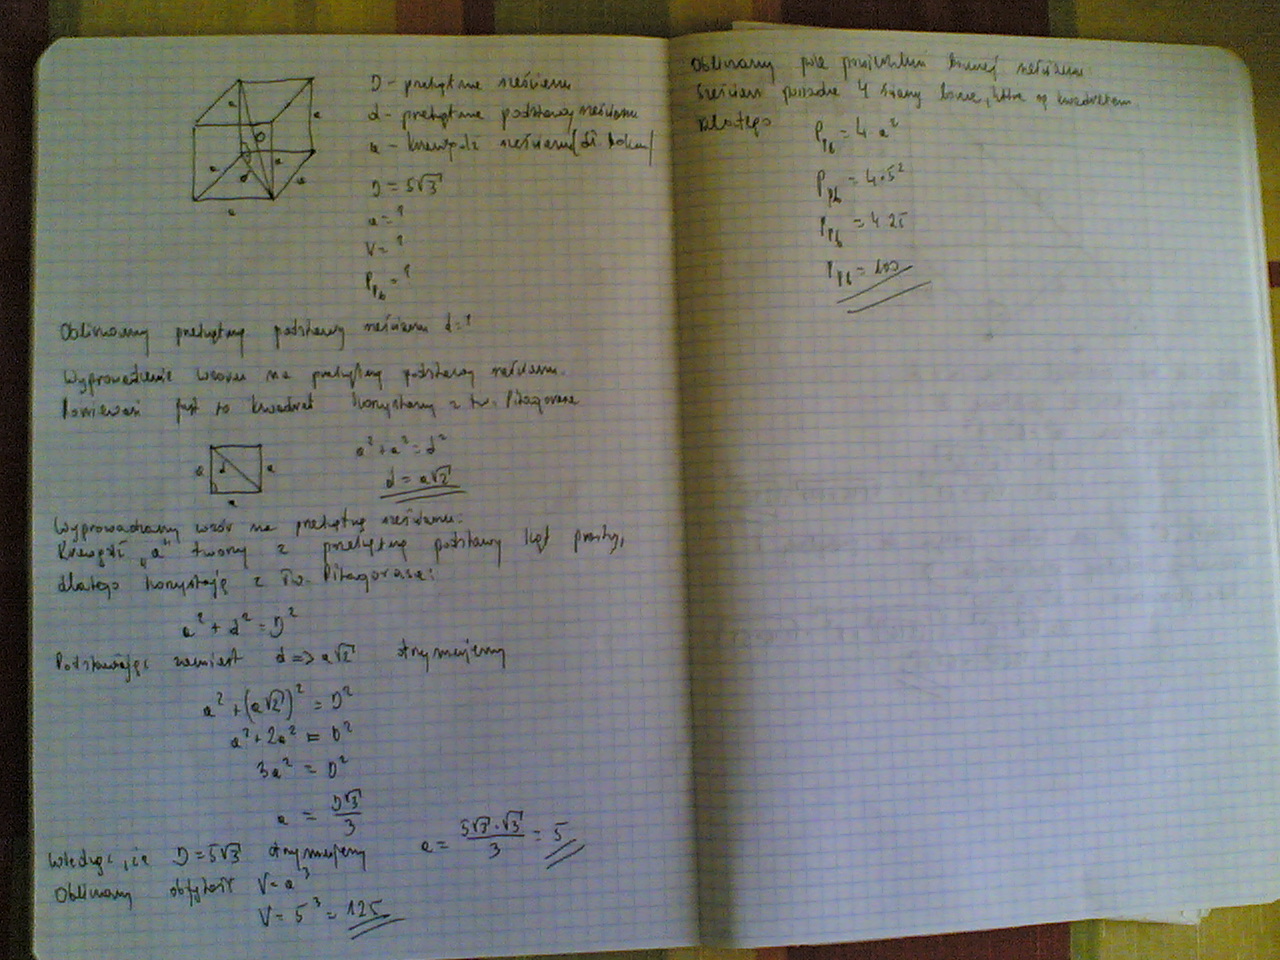 D - przekątna sześcianu
d - przekątna podstawy sześcianu
a - krawędź sześcianu (dł. boku)
D = 5√3
a = ?
V = ?
Ppb = ?
a
a
a
a
a
a
D
d
a
Obliczamy przekątną podstawy sześcianu d = ?
Wyprowadzenie wzoru na przekątną podstawy sześcianu.
Ponieważ jest to kwadrat korzystamy z tw. Pitagorasa
a
d
a
a
a² + a² = d²
d = a√2
Wyprowadzamy wzór na przekątną sześcianu.
Krawędź „a" tworzy z przekątną podstawy kąt prosty,
dlatego korzystając z tw. Pitagorasa:
a² + d² = D²
Podstawiając zamiast d => a√2 otrzymujemy
a² + (a√2)² = D²
a² + 2a² = D²
3a² = D²
a = D√3/3
Wiedząc, że D = 5√3 otrzymujemy a = 5√3·√3/3 = 5
Obliczamy objętość V = a³
V = 5³ = 125
Obliczamy pole powierzchni bocznej sześcianu
Sześcian posiada 4 ściany boczne, które są kwadratem
Dlatego
Ppb = 4 a²
Ppb = 4·5²
Ppb = 4 25
Ppb = 100